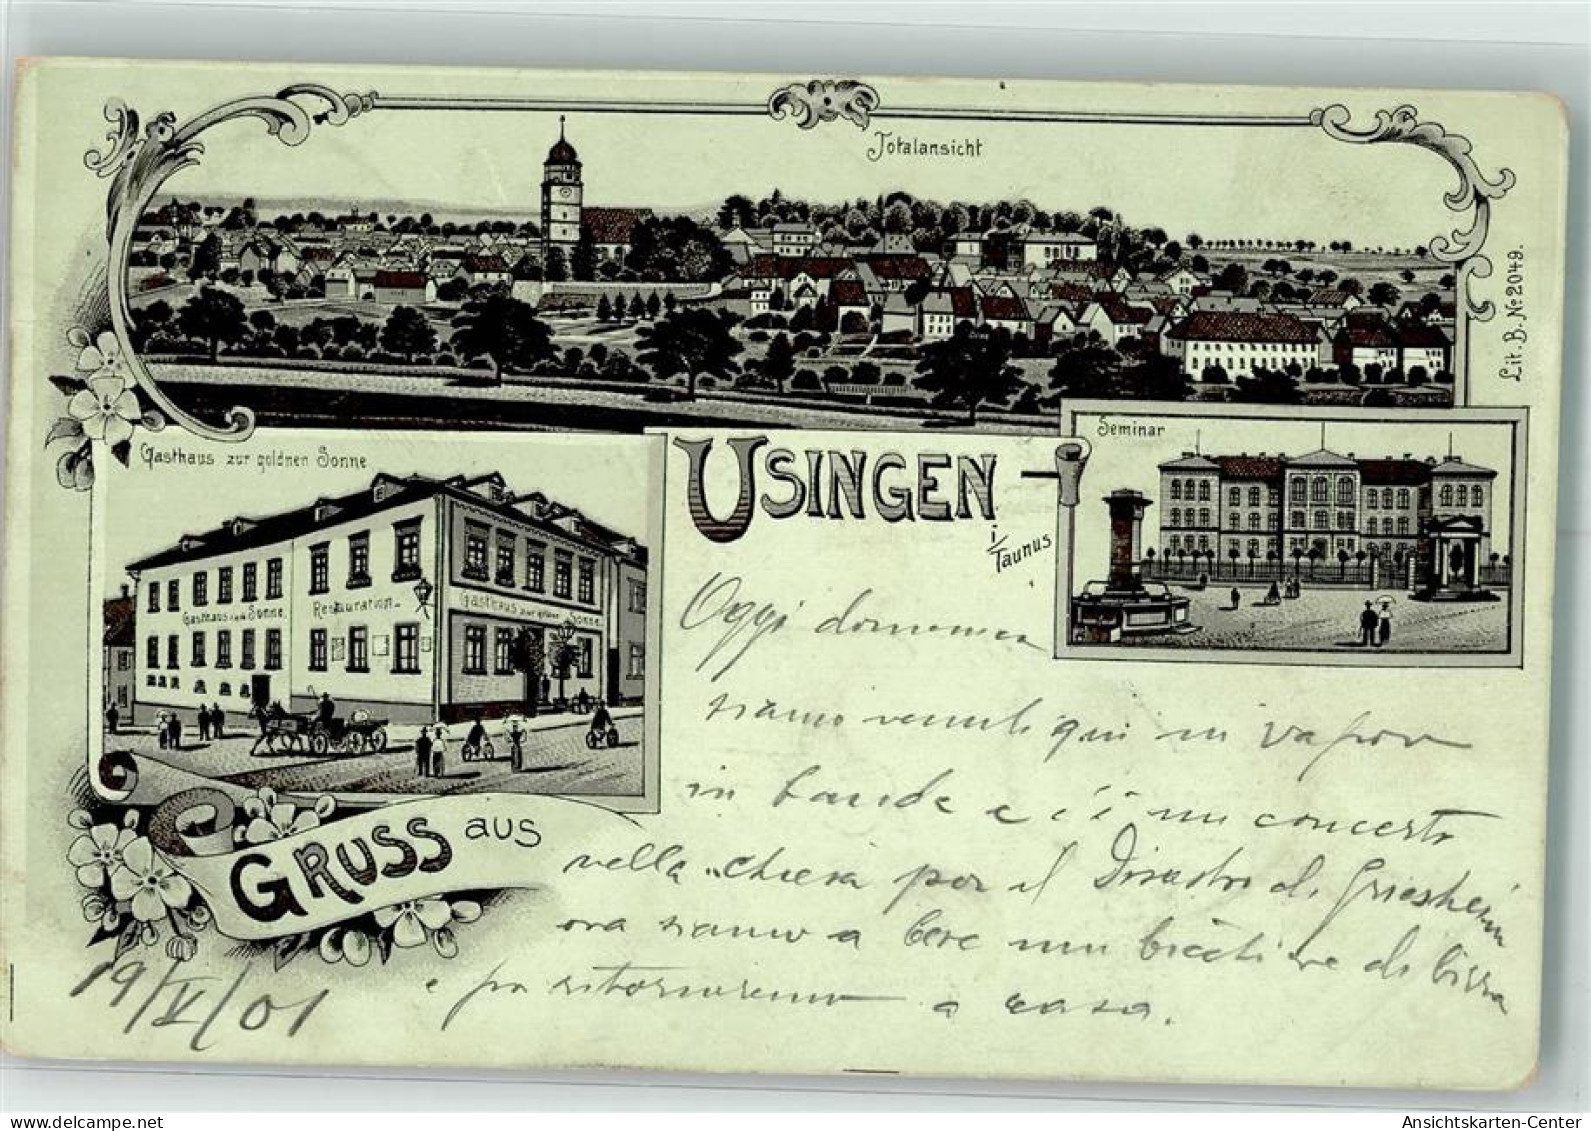 Totalansicht
Lit. B. No 2049.
Gasthaus zur goldnen Sonne
USINGEN
i/Taunus
Seminar
Gasthaus zur Sonne.
Restauration.
Gasthaus zur gold. Sonne.
Oggi domenica
siamo venuti qui in vapor
in bande e c'è un concerto
nella chiesa per il Disastro di Griesheim
ora siamo a bere un bicchiere di birra
e poi ritorneremo a casa.
GRUSS aus
19/V/01
delcampe.net
Ansichtskarten-Center